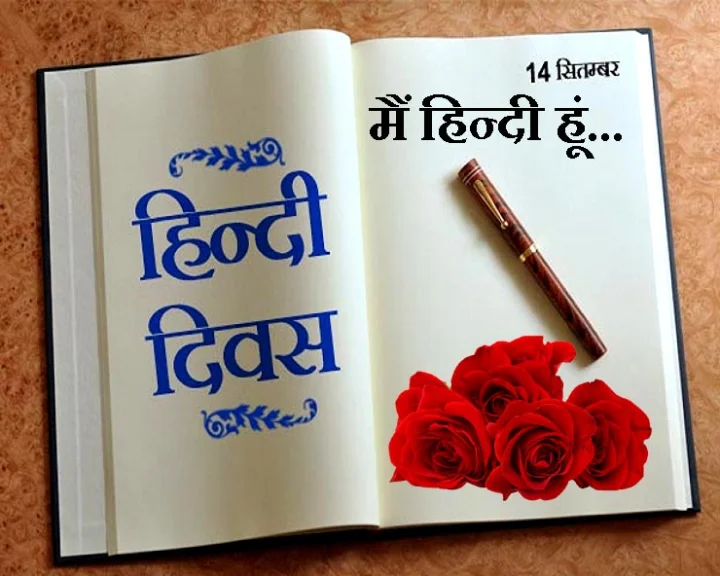 हिन्दी
दिवस
14 सितम्बर
मैं हिन्दी हूं...